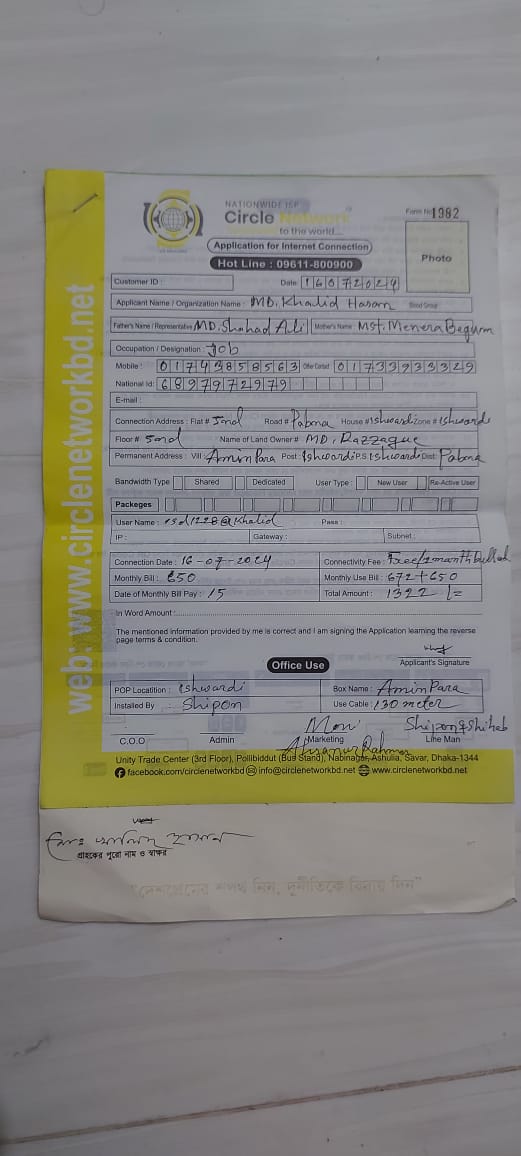 NATIONWIDE ISP
Circle Network
to the world...
Form No 1982
Application for Internet Connection
Hot Line : 09611-800900
Photo
Customer ID :
Date 16072024
Applicant Name / Organization Name : MD. Khalid Hasan Blood Group
Father's Name / Representative MD. Shahad Ali Mother's Name : Mst. Menera Begum
Occupation / Designation : Job
Mobile : 01743858563 Other Contact 01733933329
National Id: 6897972979
E-mail :
Connection Address : Flat # 5md Road # Pabna House # Ishwardi Zone # Ishwardi
Floor # 5md Name of Land Owner # MD. Razzaque
Permanent Address : Vill AminPara Post : Ishwardi P.S Ishwardi Dist: Pabna
Bandwidth Type Shared Dedicated User Type : New User Re-Active User
Packeges
User Name : isd1228@Khalid Pass :
IP : Gateway : Subnet :
Connection Date : 16-07-2024 Connectivity Fee : Free/1month
Monthly Bill : 650 Monthly Use Bill : 672+650
Date of Monthly Bill Pay : 15 Total Amount : 1322/=
In Word Amount :
The mentioned information provided by me is correct and I am signing the Application learning the reverse
page terms & condition.
Applicant's Signature
Office Use
POP Locatition : Ishwardi Box Name : AminPara
Installed By : Shipon Use Cable : 130 meter
Moni Shipon & Shihab
C.O.O Admin Marketing Line Man
Ahsanur Rahman
Unity Trade Center (3rd Floor), Pollibiddut (Bus Stand), Nabinagar, Ashulia, Savar, Dhaka-1344
facebook.com/circlenetworkbd info@circlenetworkbd.net www.circlenetworkbd.net
web: www.circlenetworkbd.net
মোঃ খালিদ হাসান
গ্রাহকের পুরো নাম ও স্বাক্ষর
"দেশপ্রেমের শপথ নিন, দুর্নীতিকে বিদায় দিন"